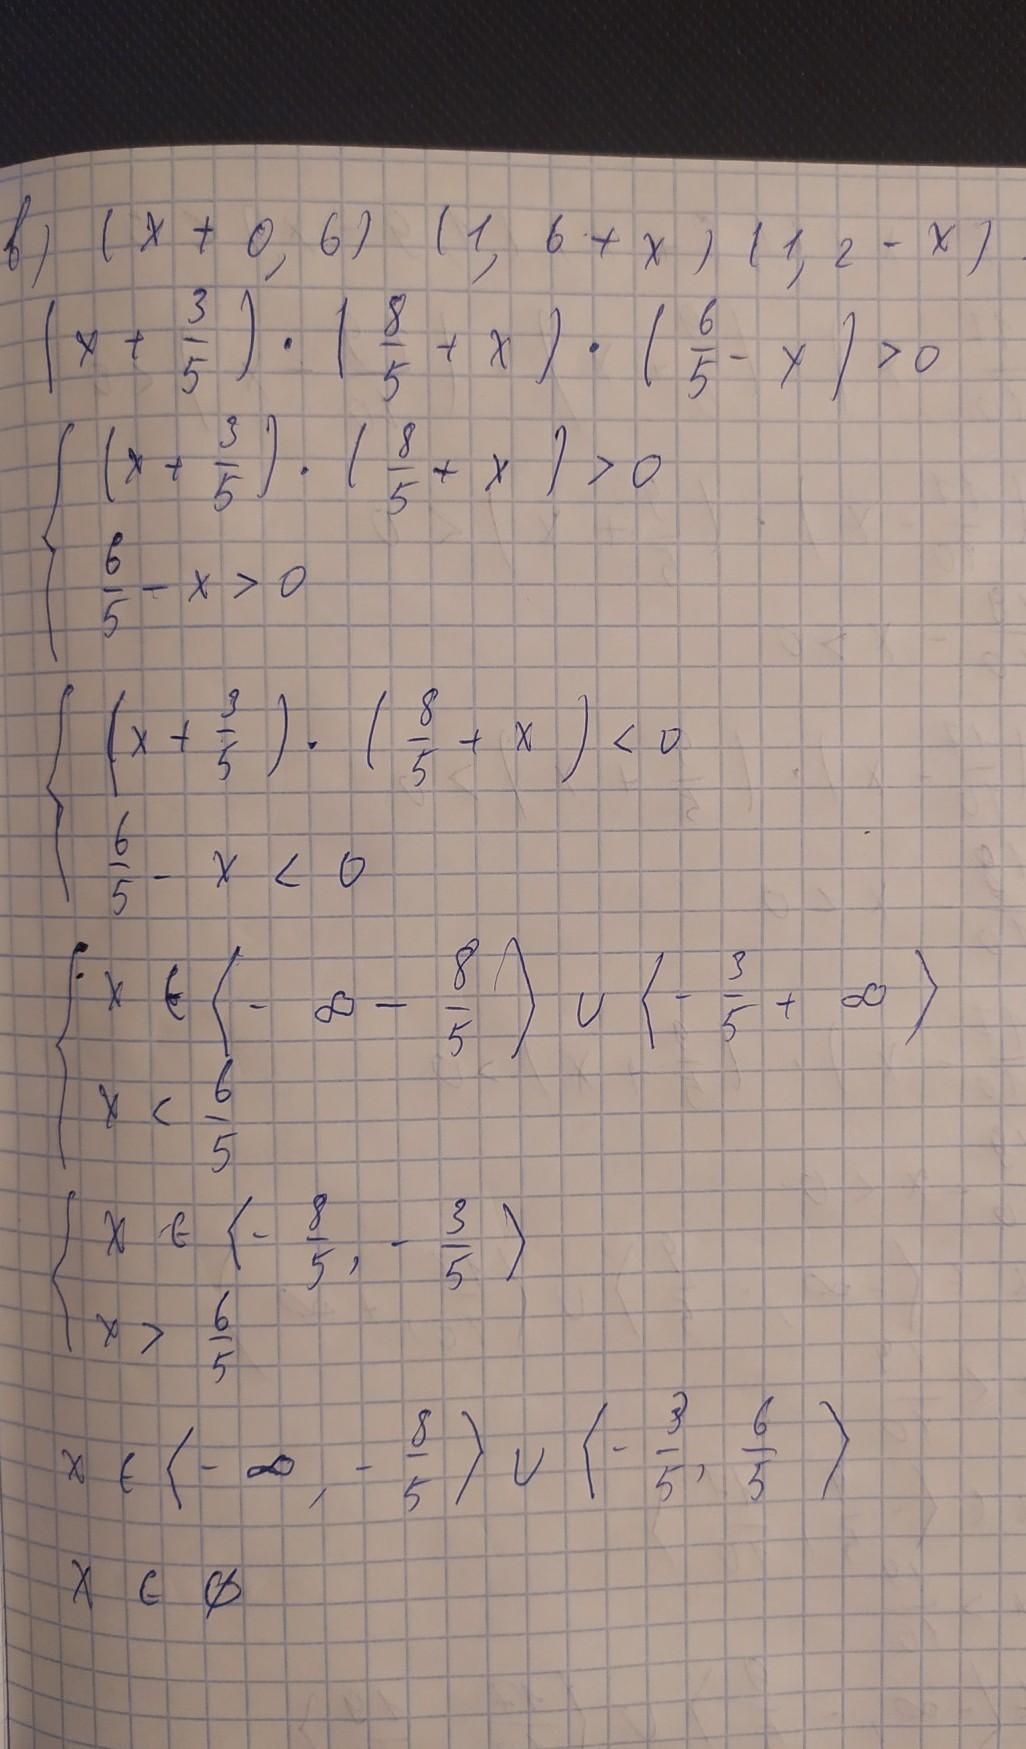 в) (x + 0,6) (1,6 + x) (1,2 - x)
(x + 3/5) · (8/5 + x) · (6/5 - x) > 0
{ (x + 3/5) · (8/5 + x) > 0
6/5 - x > 0
{ (x + 3/5) · (8/5 + x) < 0
6/5 - x < 0
{ x ∈ ⟨- ∞ - 8/5⟩ ∪ ⟨- 3/5 + ∞⟩
x < 6/5
{ x ∈ ⟨- 8/5, - 3/5⟩
x > 6/5
x ∈ ⟨- ∞, - 8/5⟩ ∪ ⟨- 3/5, 6/5⟩
x ∈ ∅